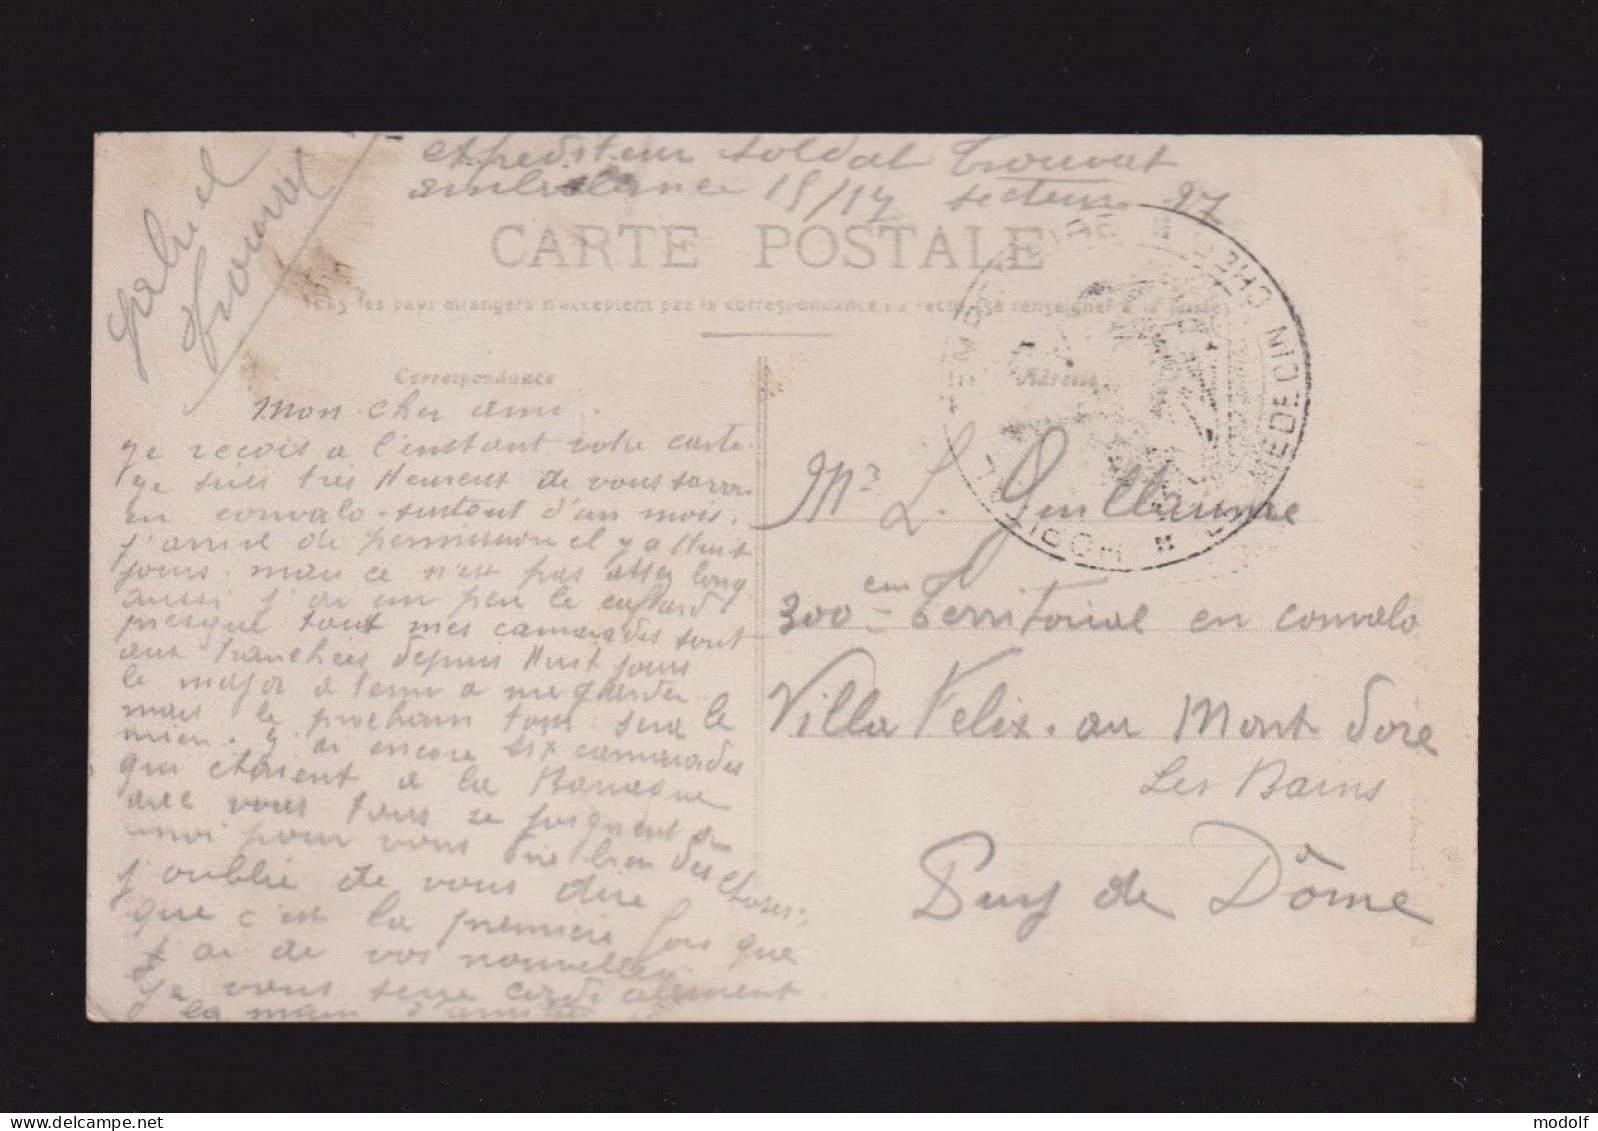 expediteur soldat Trouvat
ambulance 15/17 secteur 97
Gabriel
Trouvat
CARTE POSTALE
Tous les pays étrangers n'acceptent pas la correspondance au recto, se renseigner à la poste
Correspondance
Adresse
Mon cher ami.
je recois a l'enstant votre carte.
je suis tres Heureux de vous savoir
en convalo. surtout d'un mois.
j'arrive de permission il y a Huit
jours. mais ce n'est pas assez long
aussi j'ai un peu le cafard
presque tout mes camarades sont
aux tranchees depuis Huit jours
le major a tenu a me garder
mais le prochain tour sera le
mien. j'ai encore six camarades
qui etaient a la
avec vous tous se joignent a
moi pour vous dire bien des choses.
j'oublie de vous dire
que c'est la premiere fois que
j'ai de vos nouvelles
je vous serre cordialement
la main d'amitié
Mr L. Guillaume
300em Territorial en convalo
Villa Felix. au Mont Dore
Les Bains
Puy de Dôme
HOPITAL
LE MEDECIN CHEF
modolf